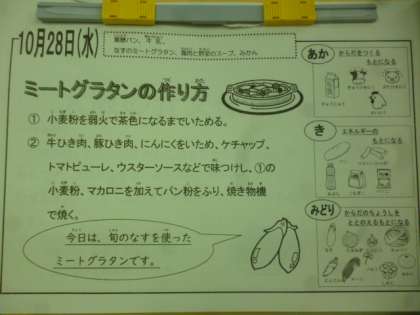 10月28日(水)
黒糖パン、牛乳、
なすのミートグラタン、鶏肉と野菜のスープ、みかん
ミートグラタンの作り方
① 小麦粉を弱火で茶色になるまでいためる。
② 牛ひき肉、豚ひき肉、にんにくをいため、ケチャップ、
トマトピューレ、ウスターソースなどで味つけし、①の
小麦粉、マカロニを加えてパン粉をふり、焼き物機
で焼く。
今日は、旬のなすを使った
ミートグラタンです。
あか
からだをつくる
もとになる
き
エネルギーの
もとになる
みどり
からだのちょうしを
ととのえるもとになる